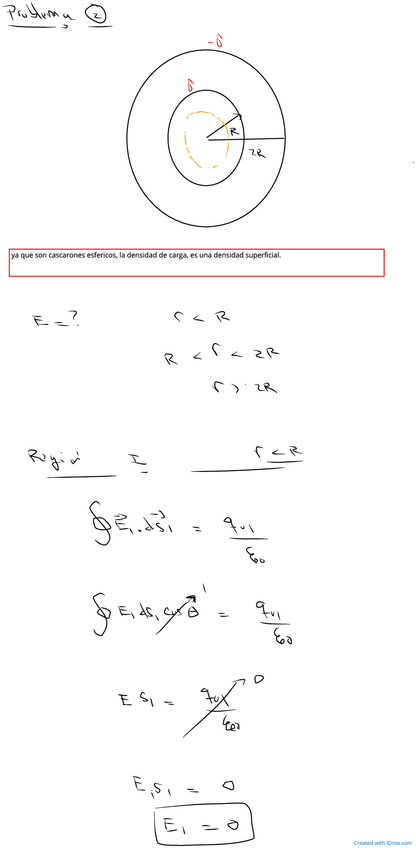 Problema ②
-δ
δ
R
2R
ya que son cascarones esfericos, la densidad de carga, es una densidad superficial.
E = ?
r < R
R < r < 2R
r > 2R
Región I r < R
∮ E⃗₁ · ds⃗₁ = qₙ₁ / ε₀
∮ E₁ ds₁ cos θ ¹ = qₙ₁ / ε₀
E S₁ = qₙ₁ / ε₀ 0
E₁ S₁ = 0
E₁ = 0
Created with IDroo.com